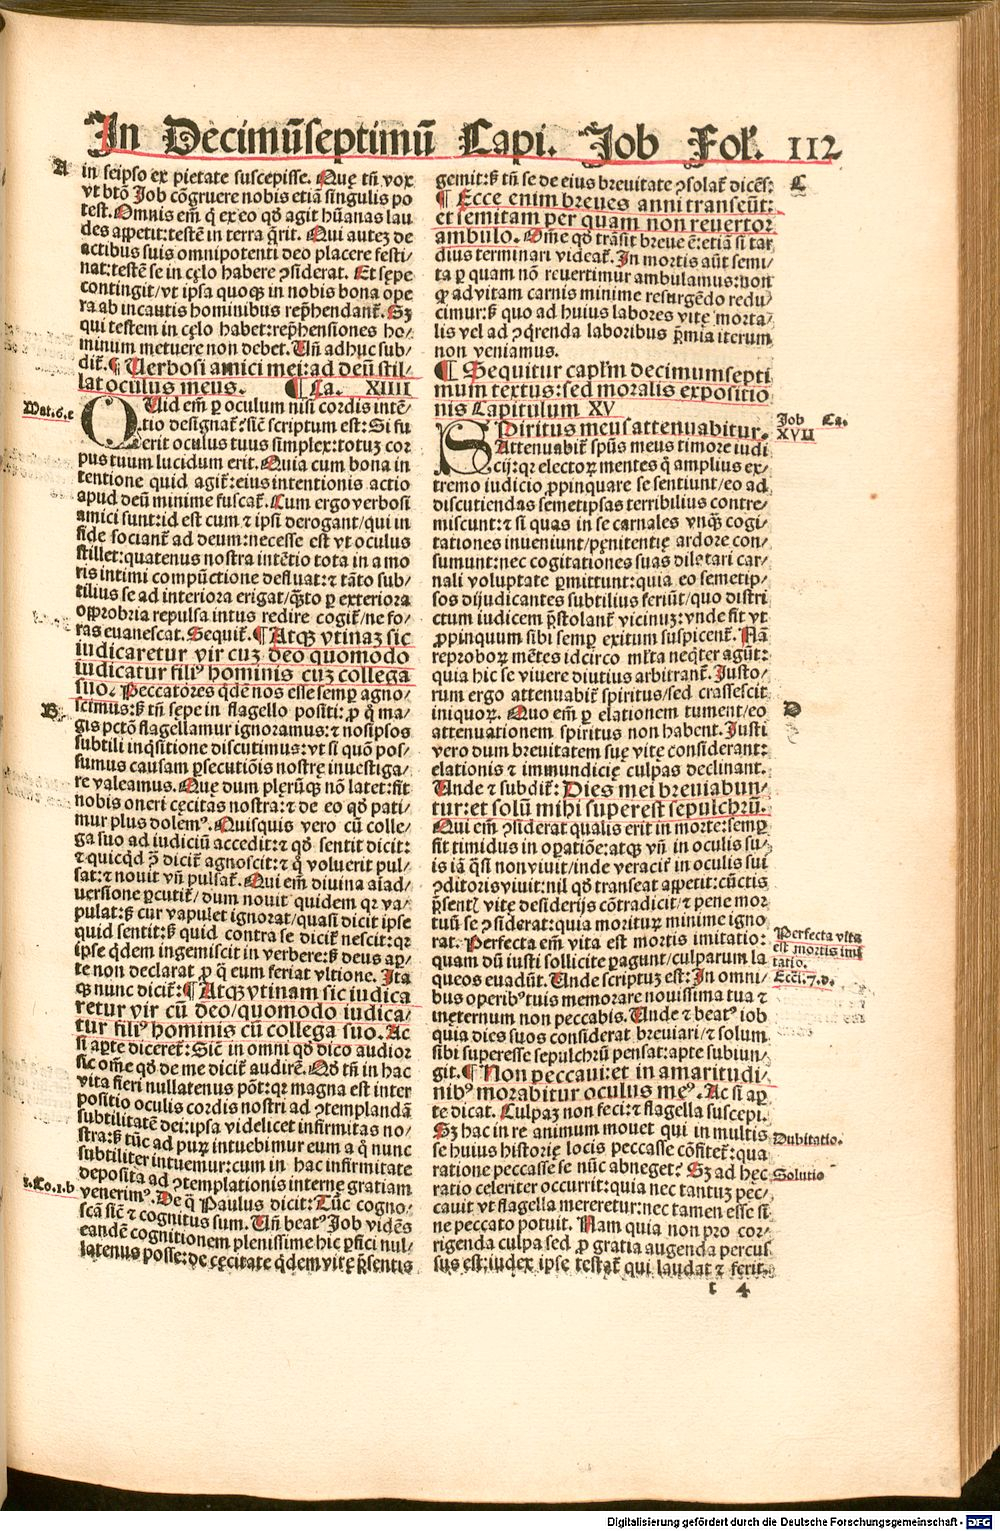 In Decimũseptimũ Capi. Job Fol. 112
A
in seipso ex pietate suscepisse. Quę tñ vox
vt btõ Job cõgruere nobis etiã singulis po
test. Omnis em̃ q̃ ex eo qđ agit hũanas lau
des appetit: testẽ in terra q̃rit. Qui autez de
actibus suis omnipotenti deo placere festi/
nat: testẽ se in cęlo habere ꝯsiderat. Et sępe
contingit/vt ipsa quoqꝫ in nobis bona ope
ra ab incautis hominibus rep̃hendant᷑. Sꝫ
qui testem in cęlo habet: rep̃hensiones ho/
minum metuere non debet. Uñ adhuc sub/
dit᷑. ¶ Uerbosi amici mei: ad deũ stil/
lat oculus meus. ¶ Ca. XIIII
Mat.6.c
QUid em̃ ꝑ oculum nisi cordis intẽ/
tio designat᷑? sic̃ scriptum est: Si fu
erit oculus tuus simplex: totuz cor
pus tuum lucidum erit. Quia cum bona in
tentione quid agit᷑: eius intentionis actio
apud deũ minime fuscat᷑. Cum ergo verbosi
amici sunt: id est cum ⁊ ipsi derogant/qui in
fide sociant᷑ ad deum: necesse est vt oculus
stillet: quatenus nostra intẽtio tota in amo
ris intimi compũctione defluat: ⁊ tãto sub/
tilius se ad interiora erigat/q̃sto ꝑ exteriora
opꝓbria repulsa intus redire cogit᷑/ne fo/
ras euanescat. Sequit᷑. ¶ Atqꝫ vtinaz sic
iudicaretur vir cuz deo quomodo
iudicatur filiꝰ hominis cuz collega
suo? Peccatores q̃dẽ nos esse semꝑ agno/
B
scimus: ꝫ tñ sępe in flagello positi: ꝓ q̃ ma/
gis pctõ flagellamur ignoramus: ⁊ nosipsos
subtili inq̃sitione discutimus: vt si quõ pos/
sumus causam ꝑsecutiõis nostrę inuestiga/
re valeamus. Quę dum plęrũqꝫ nõ latet: fit
nobis oneri cęcitas nostra: ⁊ de eo qđ pati/
mur plus dolemꝰ. Quisquis vero cũ colle/
ga suo ad iudiciũ accedit: ⁊ qđ sentit dicit:
⁊ quicq̃d ꝯ̃ dicit᷑ agnoscit: ⁊ q̃ voluerit pul/
sat: ⁊ nouit vñ pulsat᷑. Qui em̃ diuina aĩad/
uersione ꝑcutit᷑/dum nouit quidem qꝛ va/
pulat: ꝫ cur vapulet ignorat/quasi dicit ipse
quid sentit: ꝫ quid contra se dicit᷑ nescit: qꝛ
ipse q̃dem ingemiscit in verbere: ꝫ deus aꝑ/
te non declarat ꝓ q̃ eum feriat vltione. Ita
qꝫ nunc dicit᷑: ¶ Atqꝫ vtinam sic iudica
retur vir cũ deo/quomodo iudica/
tur filiꝰ hominis cũ collega suo. Ac
si aꝑte diceret᷑: Sic̃ in omni qđ dico audior
sic om̃e qđ de me dicit᷑ audirẽ. Qđ tñ in hac
vita fieri nullatenus põt: qꝛ magna est inter
positio oculis cordis nostri ad ꝯtemplandã
subtilitatẽ dei: ipsa videlicet infirmitas no/
stra: ꝫ tũc ad puꝝ intuebimur eum a q̃ nunc
subtiliter intuemur: cum in hac infirmitate
deposita ad ꝯtemplationis internę gratiam
i.Co.1.b
venerimꝰ. De q̃ Paulus dicit: Tũc cogno/
scã sic̃ ⁊ cognitus sum. Uñ beatꝰ Job vidẽs
eandẽ cognitionem plenissime hic ꝑfici nul/
latenus posse: de cęcitate q̃dem vitę p̃sentis
gemit: ꝫ tñ se de eius breuitate ꝯsolat᷑ dicẽs:
C
¶ Ecce enim breues anni transeũt:
et semitam per quam non reuertor
ambulo. Om̃e qđ trãsit breue ẽ: etiã si tar
dius terminari videat᷑. In mortis aũt semi/
ta ꝑ quam nõ reuertimur ambulamus: non
qꝙ ad vitam carnis minime resurgẽdo redu/
cimur: ꝫ quo ad huius labores vitę morta/
lis vel ad ꝯq̃renda laboribus p̃mia iterum
non veniamus.
¶ Sequitur caplm̃ decimumsepti
mum textus: sed moralis expositio
nis Capitulum XV
Job Ca.
XVII
SPiritus meus attenuabitur.
Attenuabit᷑ spũs meus timore iudi
cij: qꝛ electoꝝ mentes q̃ amplius ex/
tremo iudicio ꝓpinquare se sentiunt/eo ad
discutiendas semetipsas terribilius contre/
miscunt: ⁊ si quas in se carnales vnq̃ꝫ cogi/
tationes inueniunt/pęnitentię ardore con/
sumunt: nec cogitationes suas dilatari car/
nali voluptate ꝑmittunt: quia eo semetip/
sos dijudicantes subtilius feriũt/quo distri
ctum iudicem p̃stolant᷑ vicinuz: vnde fit vt
ꝓpinquum sibi semꝑ exitum suspicent᷑. Nã
reproboꝝ mẽtes idcirco ml̃ta neq̃ter agũt:
quia hic se viuere diutius arbitrant᷑. Justo/
rum ergo attenuabit᷑ spiritus/sed crassescit
iniquoꝝ. Quo em̃ ꝑ elationem tument/eo
D
attenuationem spiritus non habent. Justi
vero dum breuitatem suę vitę considerant:
elationis ⁊ immundicię culpas declinant.
Unde ⁊ subdit᷑: Dies mei breuiabun/
tur: et solũ mihi superest sepulchrũ.
Qui em̃ ꝯsiderat qualis erit in morte: semꝑ
fit timidus in oꝑatiõe: atqꝫ vñ in oculis su/
is iã q̃si non viuit/inde veracit᷑ in oculis sui
ꝯditoris viuit: nil qđ transeat appetit: cũctis
p̃sentꝭ vitę desiderijs cõtradicit/⁊ pene mor
tuũ se ꝯsiderat: quia morituꝝ minime igno
rat. Perfecta em̃ vita est mortis imitatio:
Perfecta vita
est mortis imi
tatio.
quam dũ iusti sollicite ꝑagunt/culparum la
queos euadũt. Unde scriptuz est: In omni/
Ecci.7.d.
bus operibꝰ tuis memorare nouissima tua ⁊
ineternum non peccabis. Unde ⁊ beatꝰ iob
quia dies suos considerat breuiari/⁊ solum
sibi superesse sepulchrũ pensat: apte subiun/
git. ¶ Non peccaui: et in amaritudi/
nibꝰ morabitur oculus meꝰ. Ac si aꝑ
te dicat. Culpaz non feci: ⁊ flagella suscepi.
Sꝫ hac in re animum mouet qui in multis
Dubitatio.
se huius historię locis peccasse cõfitet᷑: qua
ratione peccasse se nũc abneget? Sꝫ ad hęc
Solutio
ratio celeriter occurrit: quia nec tantuz pec/
cauit vt flagella mereretur: nec tamen esse si
ne peccato potuit. Nam quia non pro cor/
rigenda culpa sed ꝓ gratia augenda percus
sus est: iudex ipse testat᷑ qui laudat ⁊ ferit.
t 4
Digitalisierung gefördert durch die Deutsche Forschungsgemeinschaft - DFG